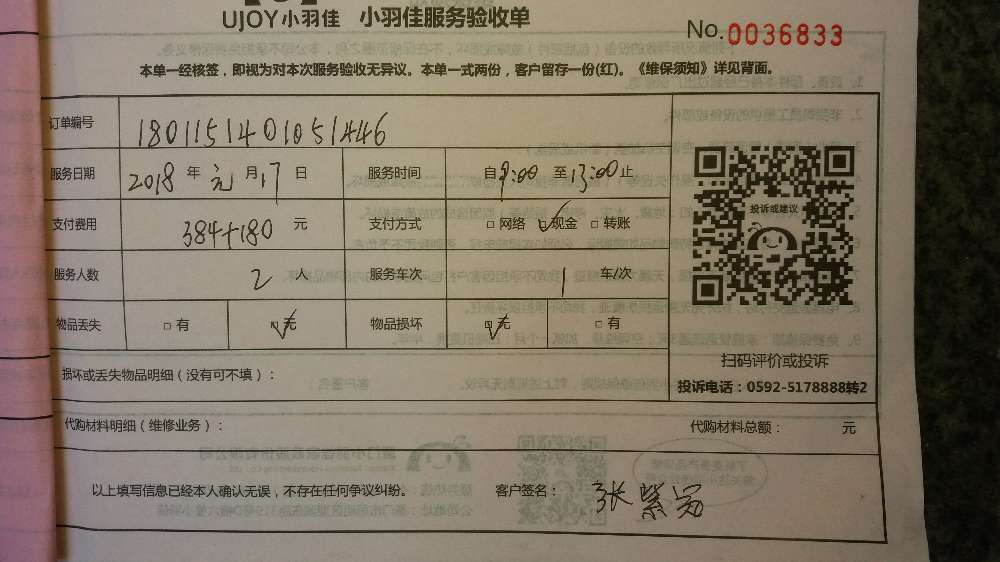 UJOY小羽佳 小羽佳服务验收单
No.0036833
本单一经核签，即视为对本次服务验收无异议。本单一式两份，客户留存一份(红)。《维保须知》详见背面。
订单编号 1801151401051446
服务日期 2018 年 元 月 17 日 服务时间 自 9:00 至 13:00 止
支付费用 384+180 元 支付方式 □ 网络 □ 现金 □ 转账
服务人数 2 人 服务车次 1 车/次
物品丢失 □ 有 □ 无 物品损坏 □ 无 □ 有
投诉或建议
扫码评价或投诉
投诉电话：0592-5178888转2
损坏或丢失物品明细（没有可不填）：
代购材料明细（维修业务）： 代购材料总额： 元
以上填写信息已经本人确认无误，不存在任何争议纠纷。 客户签名： 张紫